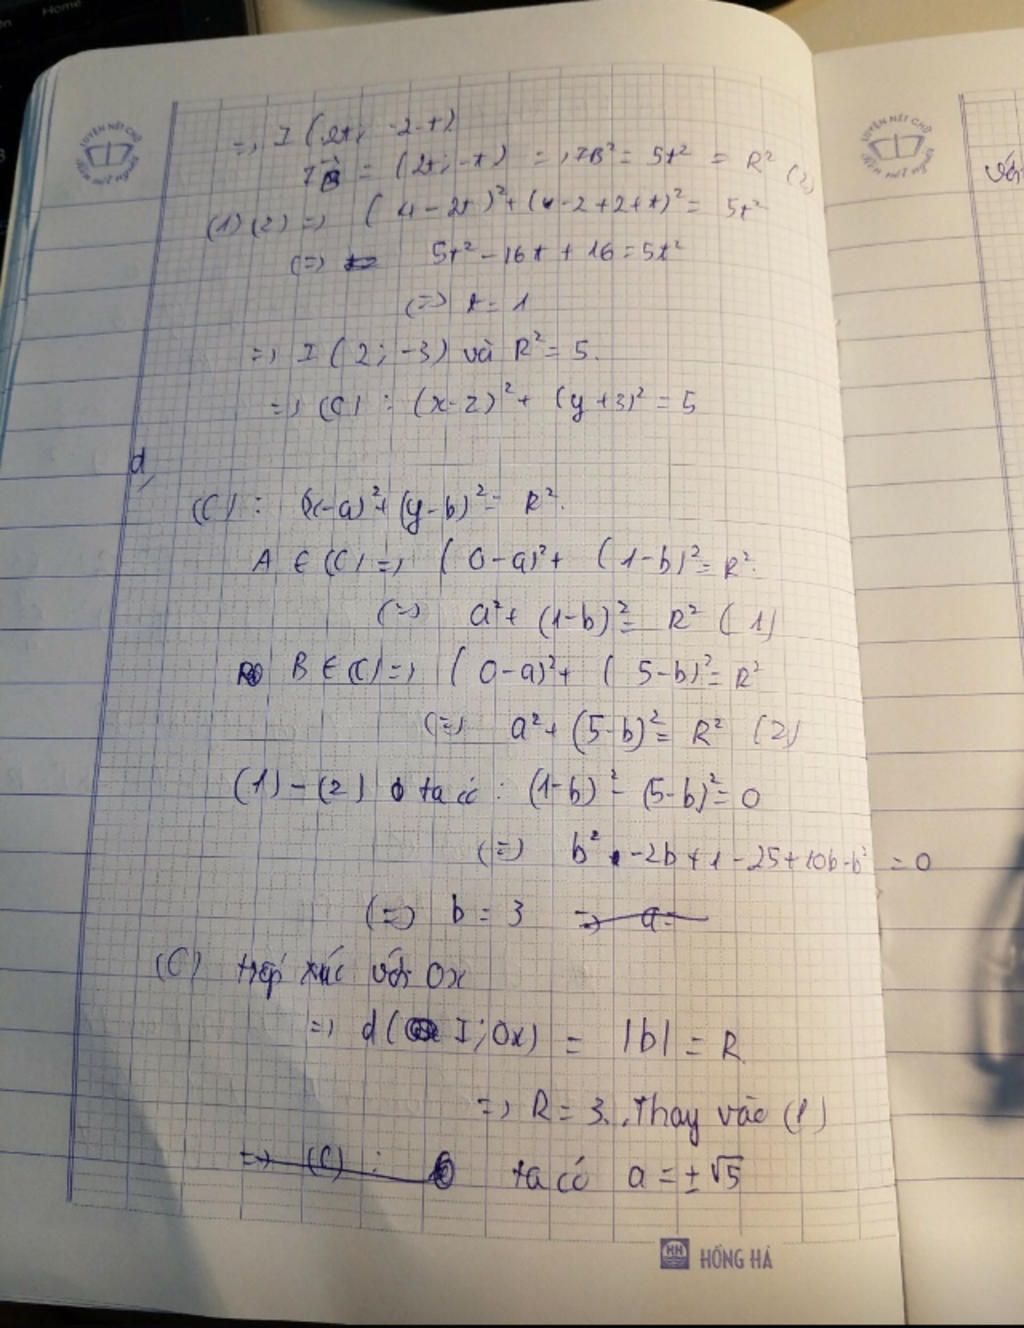 Home
LUYỆN NÉT CHỮ
=> I (2t; -2-t)
IB = (2t; -t) => IB² = 5t² = R² (2)
(1)(2) => (4-2t)²+(-2+2+t)² = 5t²
(=) 5t² - 16t + 16 = 5t²
(=) t = 1
=> I (2; -3) và R² = 5.
=> (C) : (x-2)² + (y+3)² = 5
d,
(C) : (x-a)²+(y-b)² = R².
A ∈ (C) => (0-a)²+ (1-b)² = R².
(=) a²+ (1-b)² = R² (1)
B ∈ (C) => (0-a)²+ (5-b)² = R²
(=) a²+ (5-b)² = R² (2)
(1) - (2) ta có : (1-b)² - (5-b)² = 0
(=) b² -2b+1-25+10b-b² = 0
(=) b = 3 => a =
(C) tiếp xúc với Ox
=> d( I; Ox) = |b| = R
=> R = 3. Thay vào (1)
=> (C) : ta có a = ±√5
HH HỒNG HÀ
LUYỆN NÉT CHỮ
với